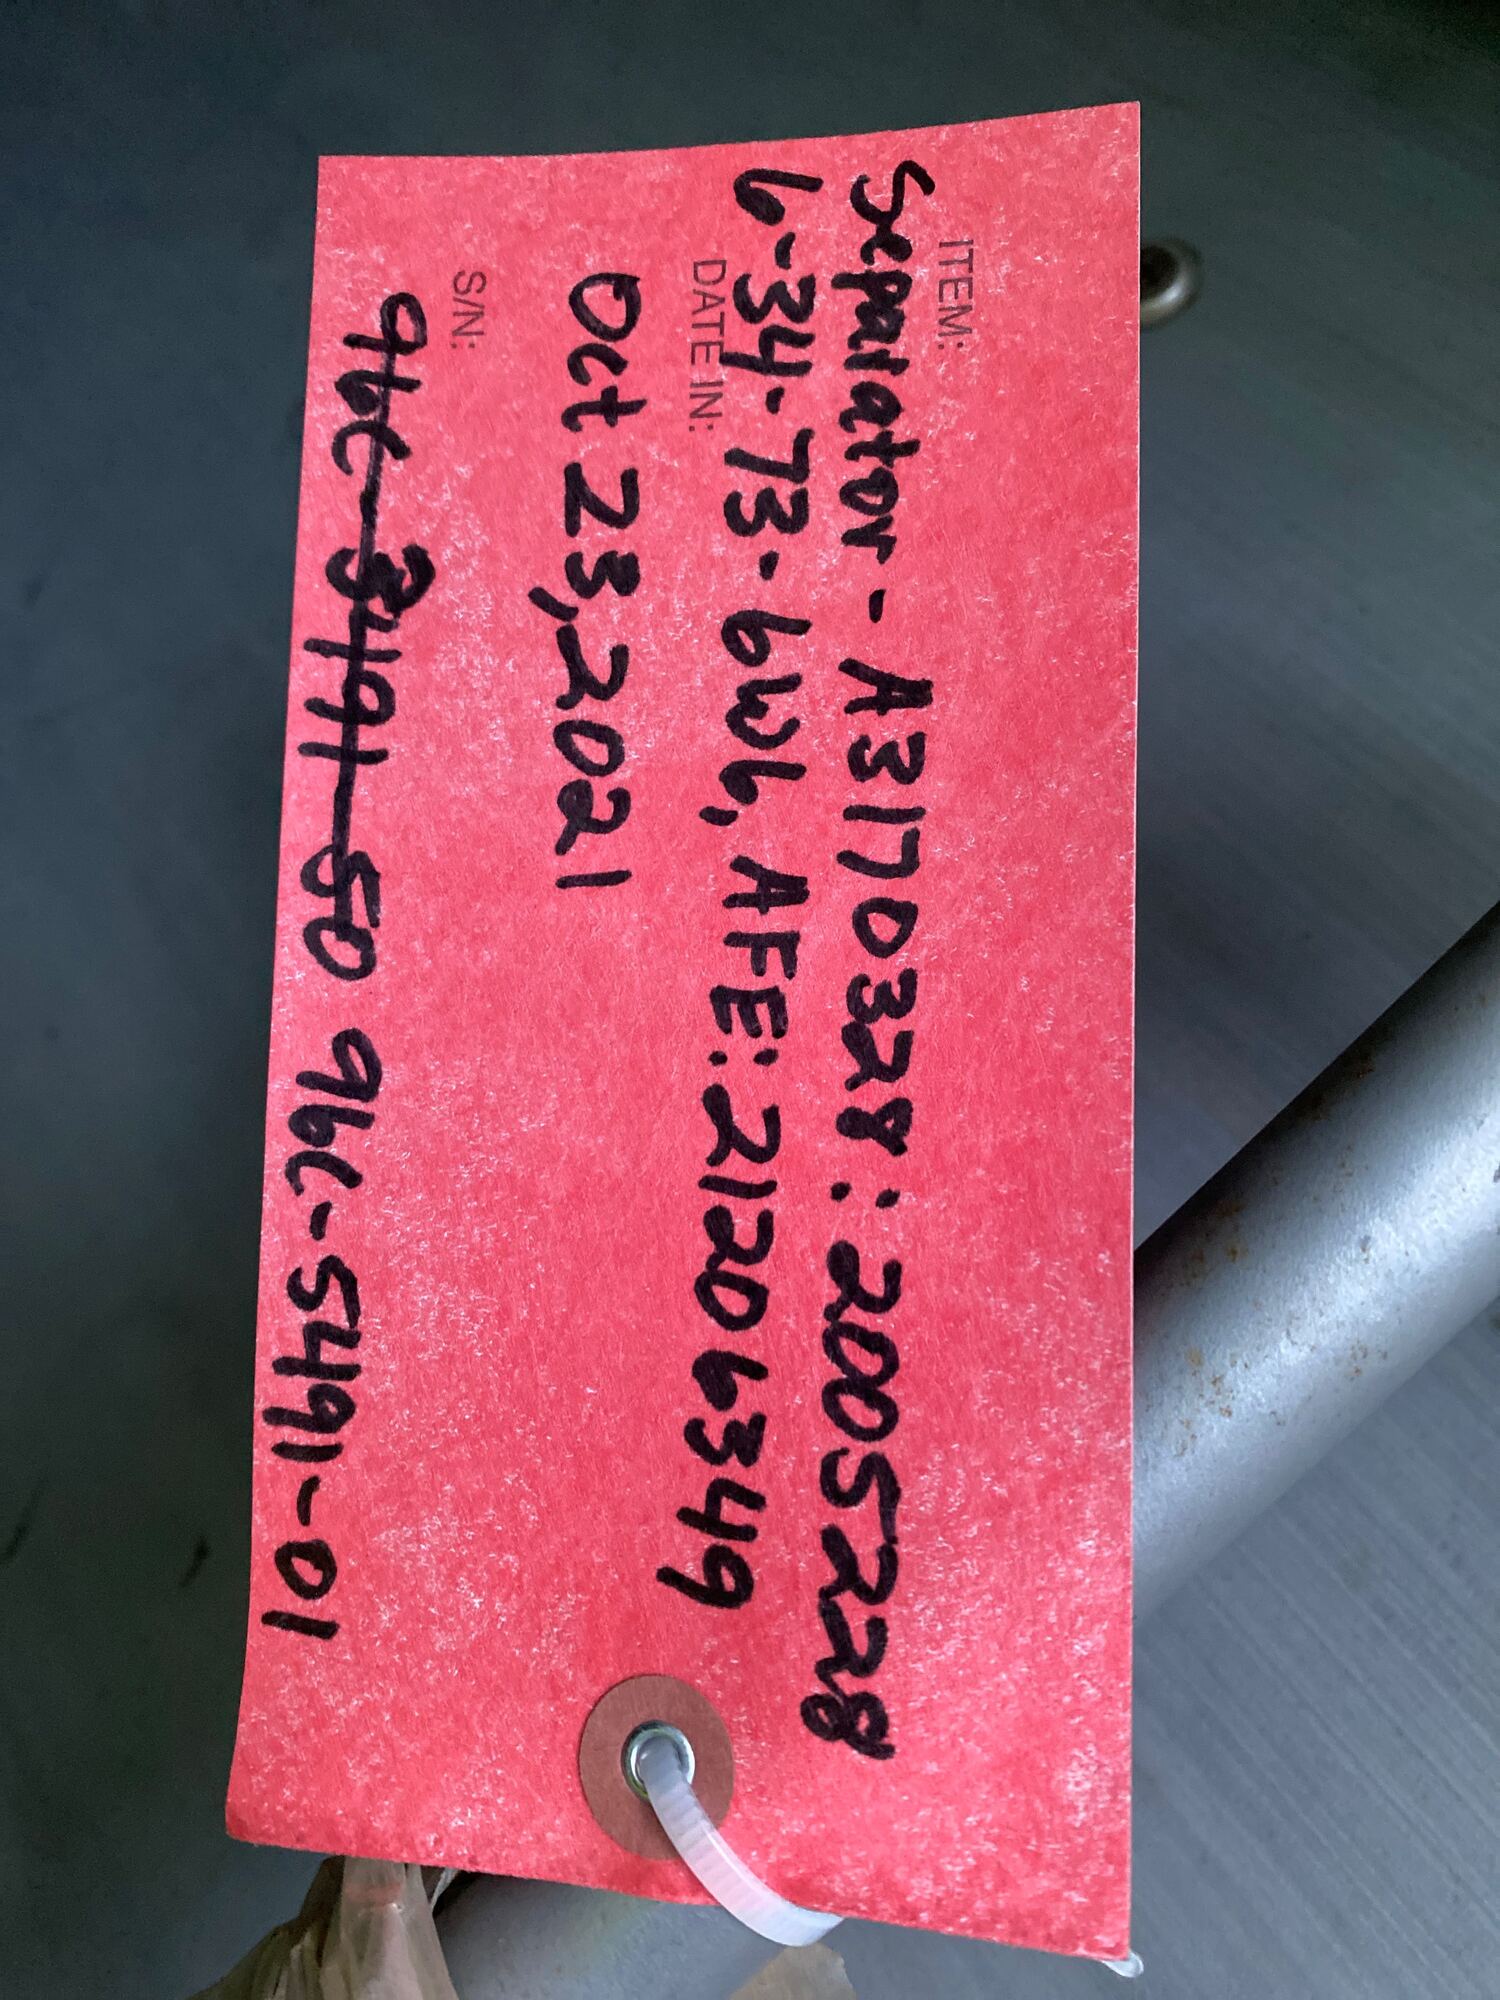 ITEM:
Separator - A3170328 : 2005228
6-34-73-6W6, AFE: 21206349
DATE IN:
Oct 23, 2021
S/N:
96C-3491-50 96C-5491-01